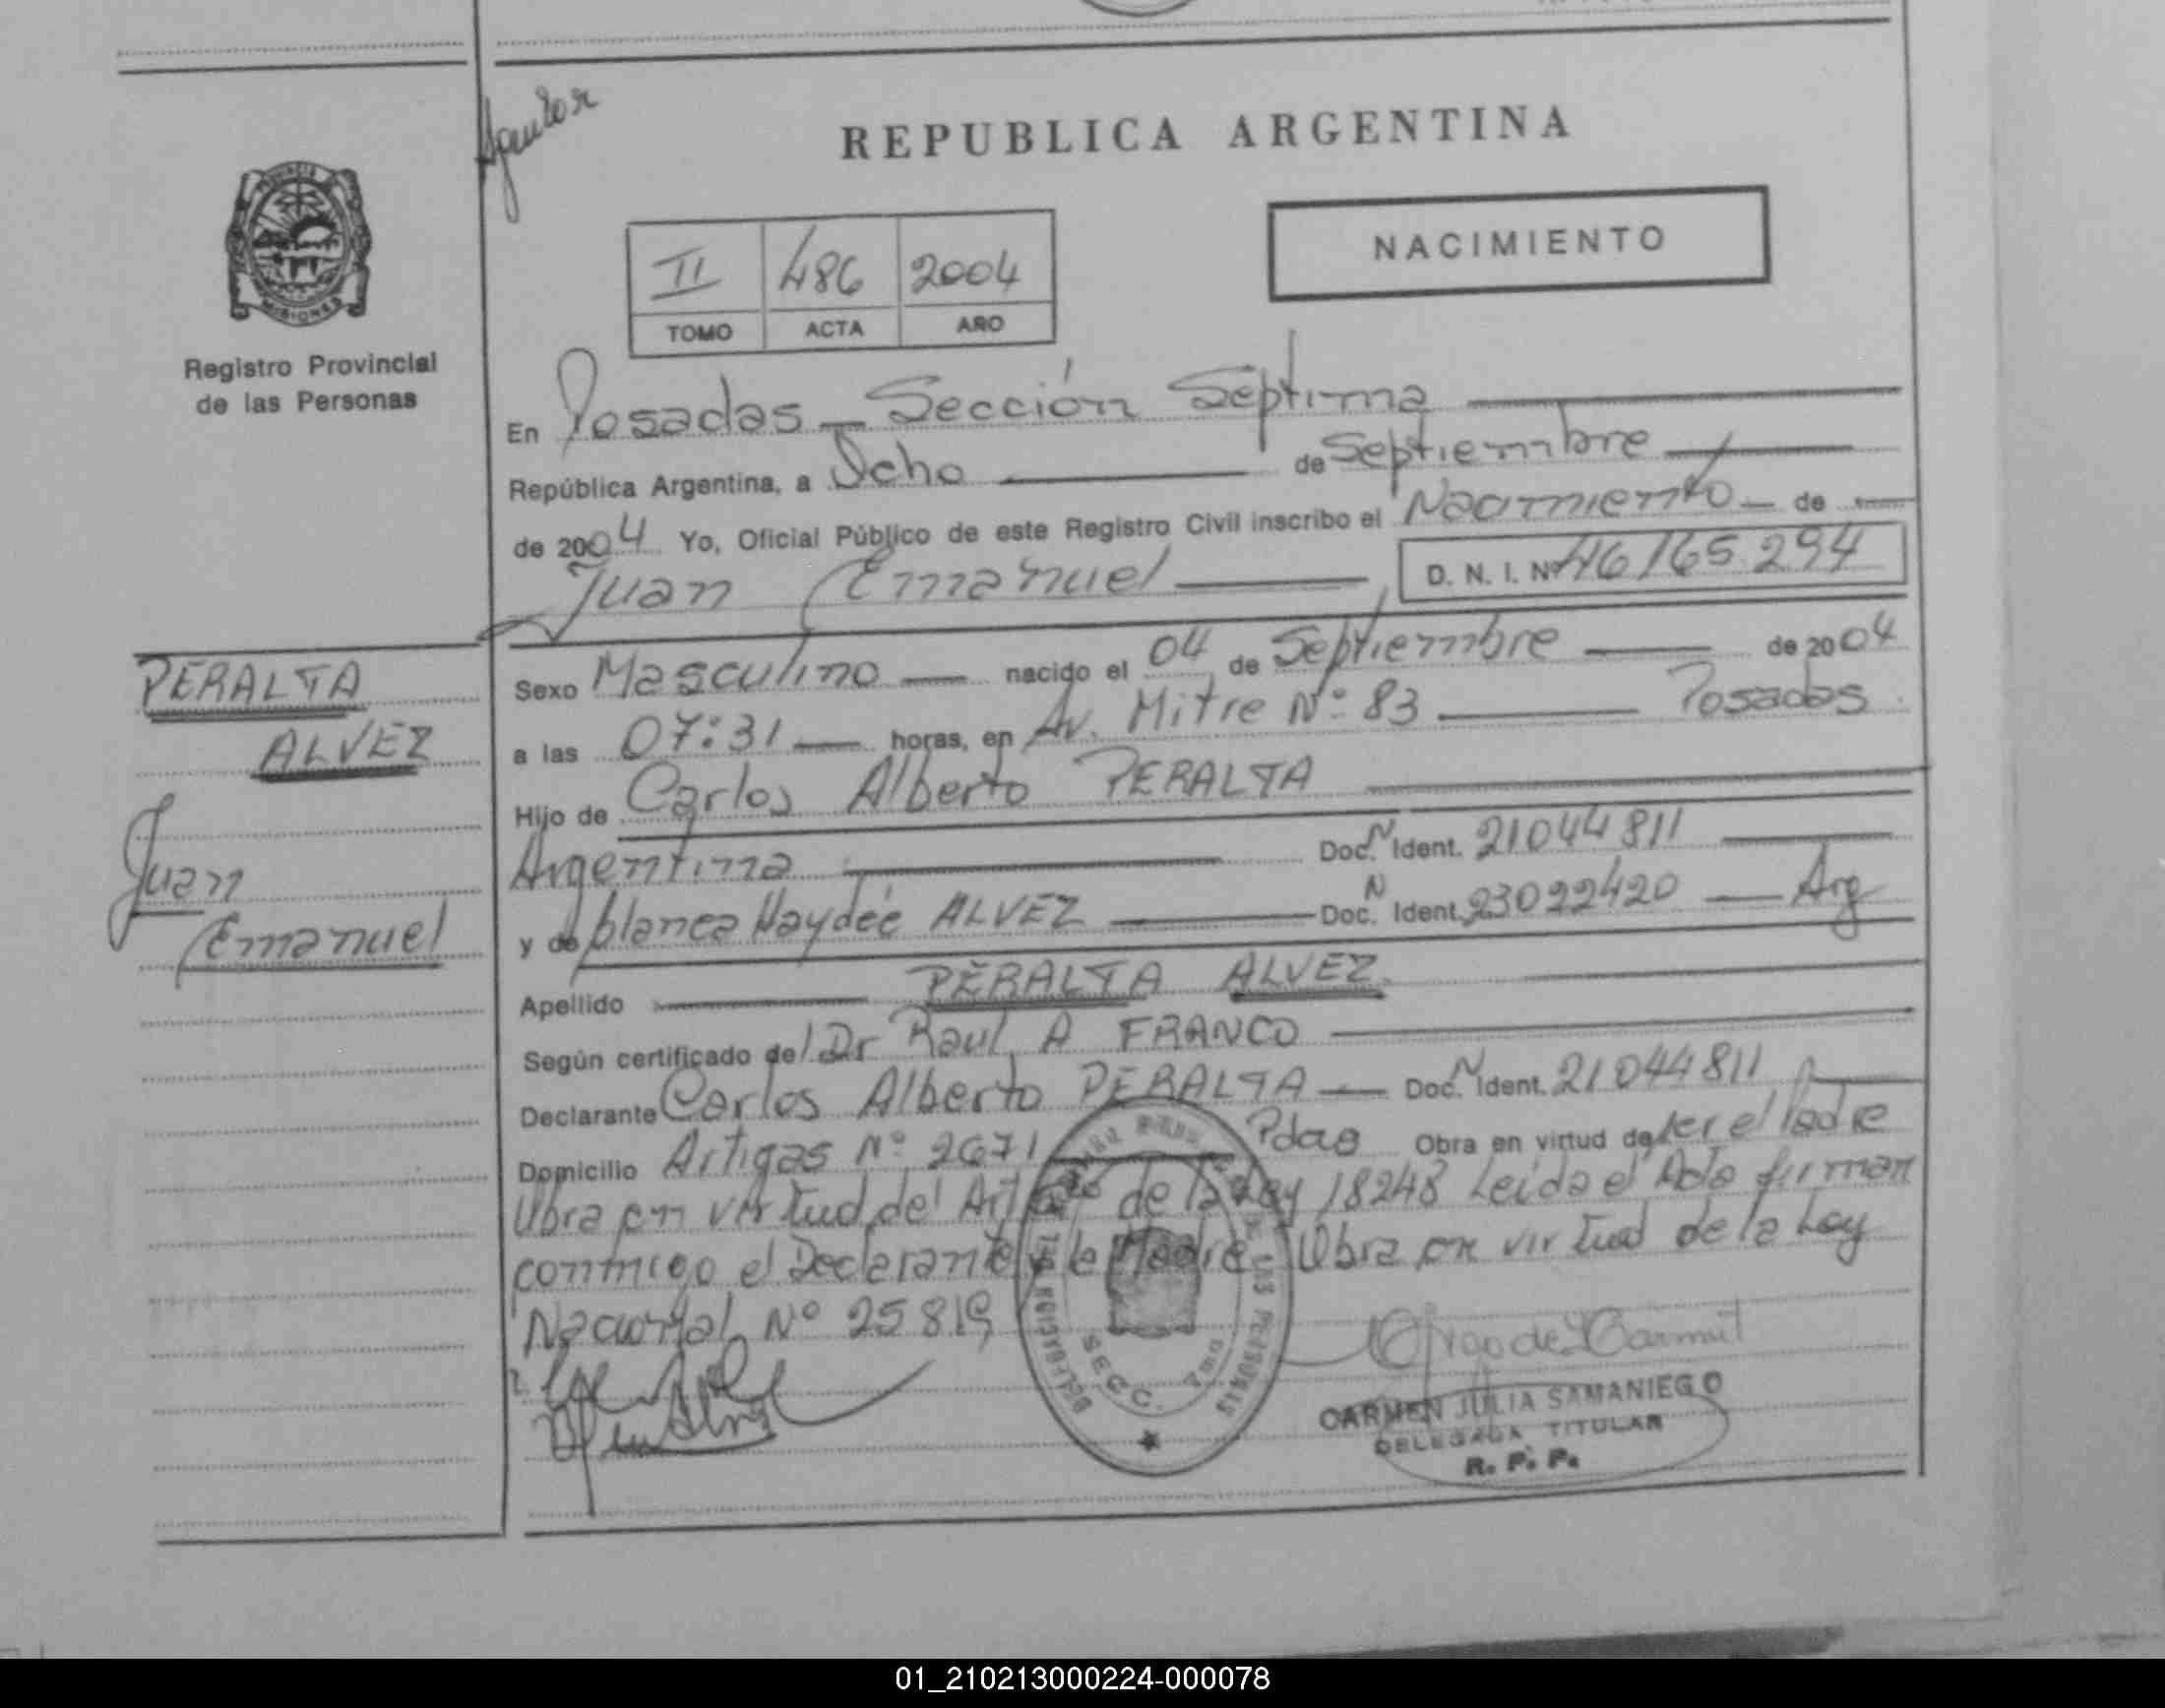 REPUBLICA ARGENTINA
NACIMIENTO
II 486 2004
TOMO ACTA AÑO
PROVINCIA
MISIONES
Registro Provincial
de las Personas
En Posadas - Sección Septima
República Argentina, a Ocho de Septiembre
de 2004 Yo, Oficial Público de este Registro Civil inscribo el Nacimiento de
Juan Emanuel D. N. I. Nº 46165.294
PERALTA
ALVEZ
Juan
Emanuel
Sexo Masculino nacido el 04 de Septiembre de 2004
a las 07:31 horas, en Av. Mitre Nº 83 Posadas
Hijo de Carlos Alberto PERALTA
Argentina Doc. N Ident. 21044811
y de blanca Haydeé ALVEZ Doc. N Ident. 23022420 Arg
Apellido PERALTA ALVEZ
Según certificado del Dr Raul A FRANCO
Declarante Carlos Alberto PERALTA Doc. N Ident. 21044811
Domicilio Artigas Nº 2671 Pdas Obra en virtud de ser el Padre
Obra en virtud del Art de la Ley 18248 Leida el Acta firman
conmigo el Declarante y la Madre Obra en virtud de la Ley
Nacional Nº 25819
DELEGACION
LAS PERSONAS
SECC. 7ma
CARMEN JULIA SAMANIEGO
DELEGADA TITULAR
R. P. P.
01_210213000224-000078